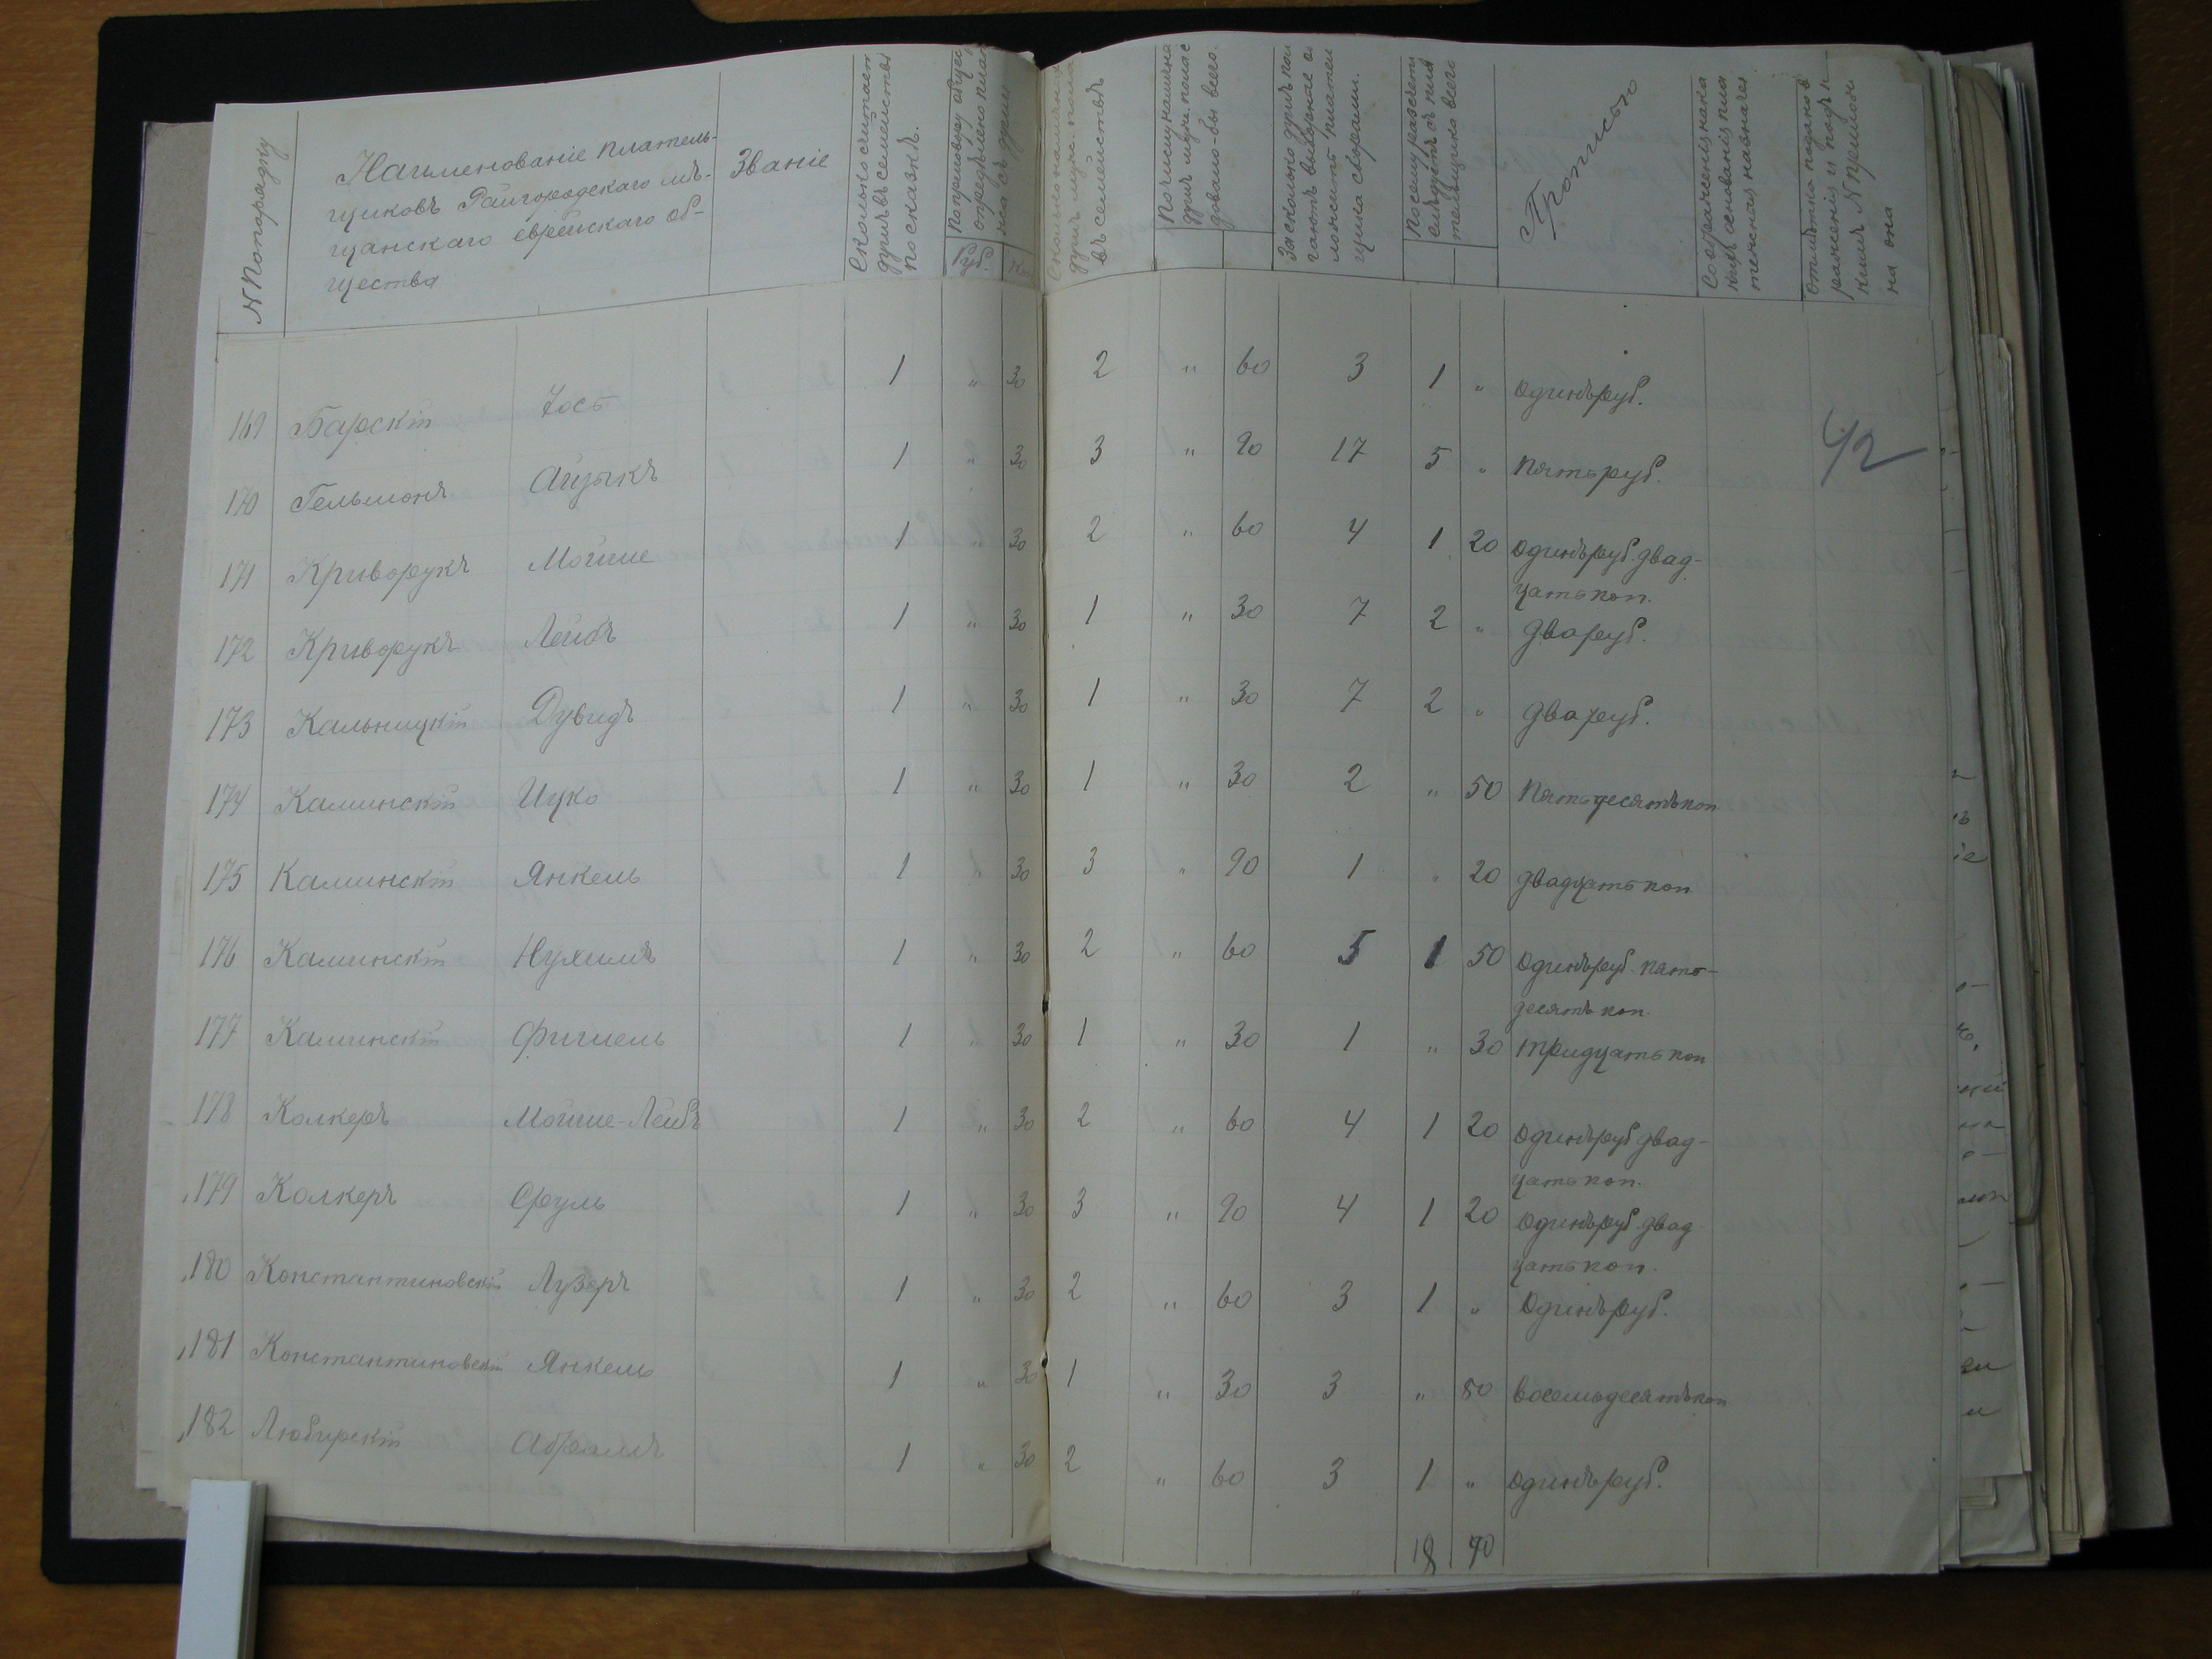 № По порядку
Наименованіе платель-
щиковъ Райгородскаго мѣ-
щанскаго еврейскаго об-
щества
Званіе
Сколько считает
душъ въ семействѣ
по сказкѣ.
По приговору общес
опредѣлено плат
нія съ души
Руб. Коп
Сколько наличн
душъ муж. пола
въ семействѣ
По числу налична
душъ муж. пола с
довало-бы всего.
За сколько душъ
Посему разсчету
слѣдуетъ съ пла
тельщика всего
Прописью
Соображенія на ка
кихъ основаніяхъ пла
тежъ назначе
Отмѣтка
42
169 Барскій Іось 1 " 30 2 " 60 3 1 " Одинъ руб.
170 Гельмонъ Айзыкъ 1 " 30 3 " 90 17 5 " Пять руб.
171 Криворукъ Мойше 1 " 30 2 " 60 4 1 20 Одинъ руб. двад-
цать коп.
172 Криворукъ Лейбъ 1 " 30 1 " 30 7 2 " Два руб.
173 Кальницкій Дувидъ 1 " 30 1 " 30 7 2 " Два руб.
174 Каминскій Ицко 1 " 30 1 " 30 2 " 50 Пятьдесятъ коп
175 Каминскій Янкель 1 " 30 3 " 90 1 " 20 двадцать коп
176 Каминскій Нухимъ 1 " 30 2 " 60 5 1 50 Одинъ руб. пять-
десятъ коп.
177 Каминскій Фишель 1 " 30 1 " 30 1 " 30 тридцать коп
178 Колкеръ Мойше-Лейбъ 1 " 30 2 " 60 4 1 20 Одинъ руб двад-
цать коп.
179 Колкеръ Сруль 1 " 30 3 " 90 4 1 20 Одинъ руб. двад
цать коп.
180 Константиновскій Лузеръ 1 " 30 2 " 60 3 1 " Одинъ руб.
181 Константиновскій Янкель 1 " 30 1 " 30 3 " 80 восемьдесятъ коп
182 Любирскій Абрамъ 1 " 30 2 " 60 3 1 " Одинъ руб.
18 90